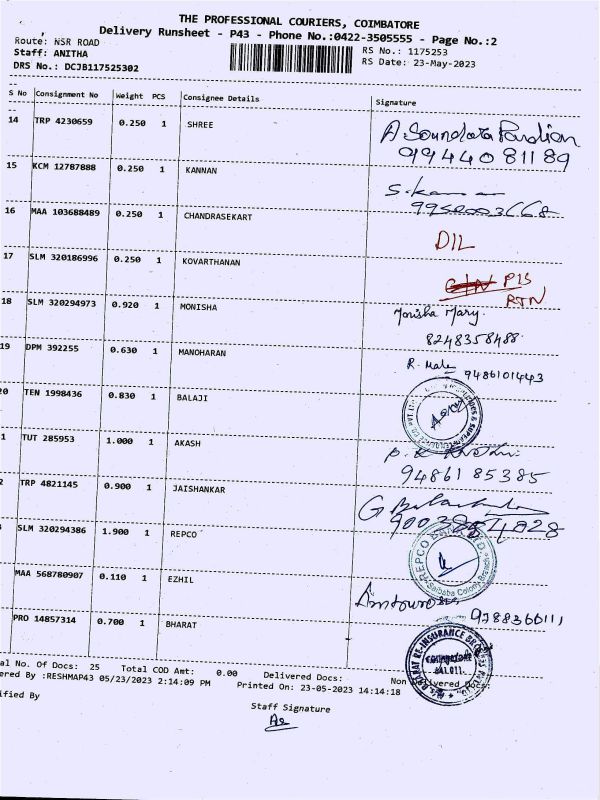 THE PROFESSIONAL COURIERS, COIMBATORE
Delivery Runsheet - P43 - Phone No.:0422-3505555 - Page No.:2
Route: NSR ROAD RS No.: 1175253
Staff: ANITHA RS Date: 23-May-2023
DRS No.: DCJB117525302
S No Consignment No Weight PCS Consignee Details Signature
14 TRP 4230659 0.250 1 SHREE A. Soundara Pandian
9194408 1189
15 KCM 12787888 0.250 1 KANNAN S.
16 MAA 103688489 0.250 1 CHANDRASEKART DIL
17 SLM 320186996 0.250 1 KOVARTHANAN
RTN
18 SLM 320294973 0.920 1 MONISHA Monisha Mary.
8248358488
19 DPM 392255 0.630 1 MANOHARAN R.
9486101443
20 TEN 1998436 0.830 1 BALAJI
1 TUT 285953 1.000 1 AKASH
94861 85385
2 TRP 4821145 0.900 1 JAISHANKAR G
SLM 320294386 1.900 1 REPCO REPCO
Saibaba Colony Branch
MAA 568780907 0.110 1 EZHIL
9788366111
PRO 14857314 0.700 1 BHARAT
al No. Of Docs: 25 Total COD Amt: 0.00 Delivered Docs: Non Delivered Docs:
ered By :RESHMAP43 05/23/2023 2:14:09 PM Printed On: 23-05-2023 14:14:18
ified By Staff Signature